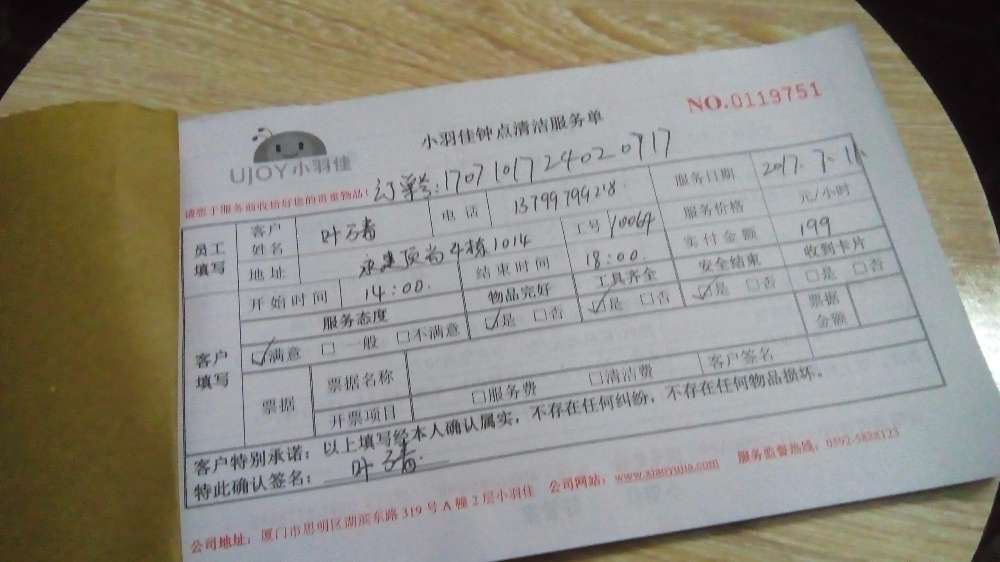 NO.0119751
小羽佳钟点清洁服务单
UJOY小羽佳
请您于服务前收拾好您的贵重物品！
订单号:17071017240209717
员工填写 客户姓名 叶 电话 服务日期 2017.7.11
地址 永 顶尚4栋1014 工号 Y0064 服务价格 元/小时
开始时间 14:00. 结束时间 18:00. 实付金额 199
客户填写 服务态度 物品完好 工具齐全 安全结束 收到卡片
☑满意 □一般 □不满意 ☑是 □否 ☑是 □否 ☑是 □否 □是 □否
票据 票据名称 票据金额
开票项目 □服务费 □清洁费 客户签名
客户特别承诺：以上填写经本人确认属实，不存在任何纠纷，不存在任何物品损坏。
特此确认签名： 叶
公司地址：厦门市思明区湖滨东路319号A幢2层小羽佳 公司网站：www.xiaoyujia.com 服务监督热线：0592-5888123